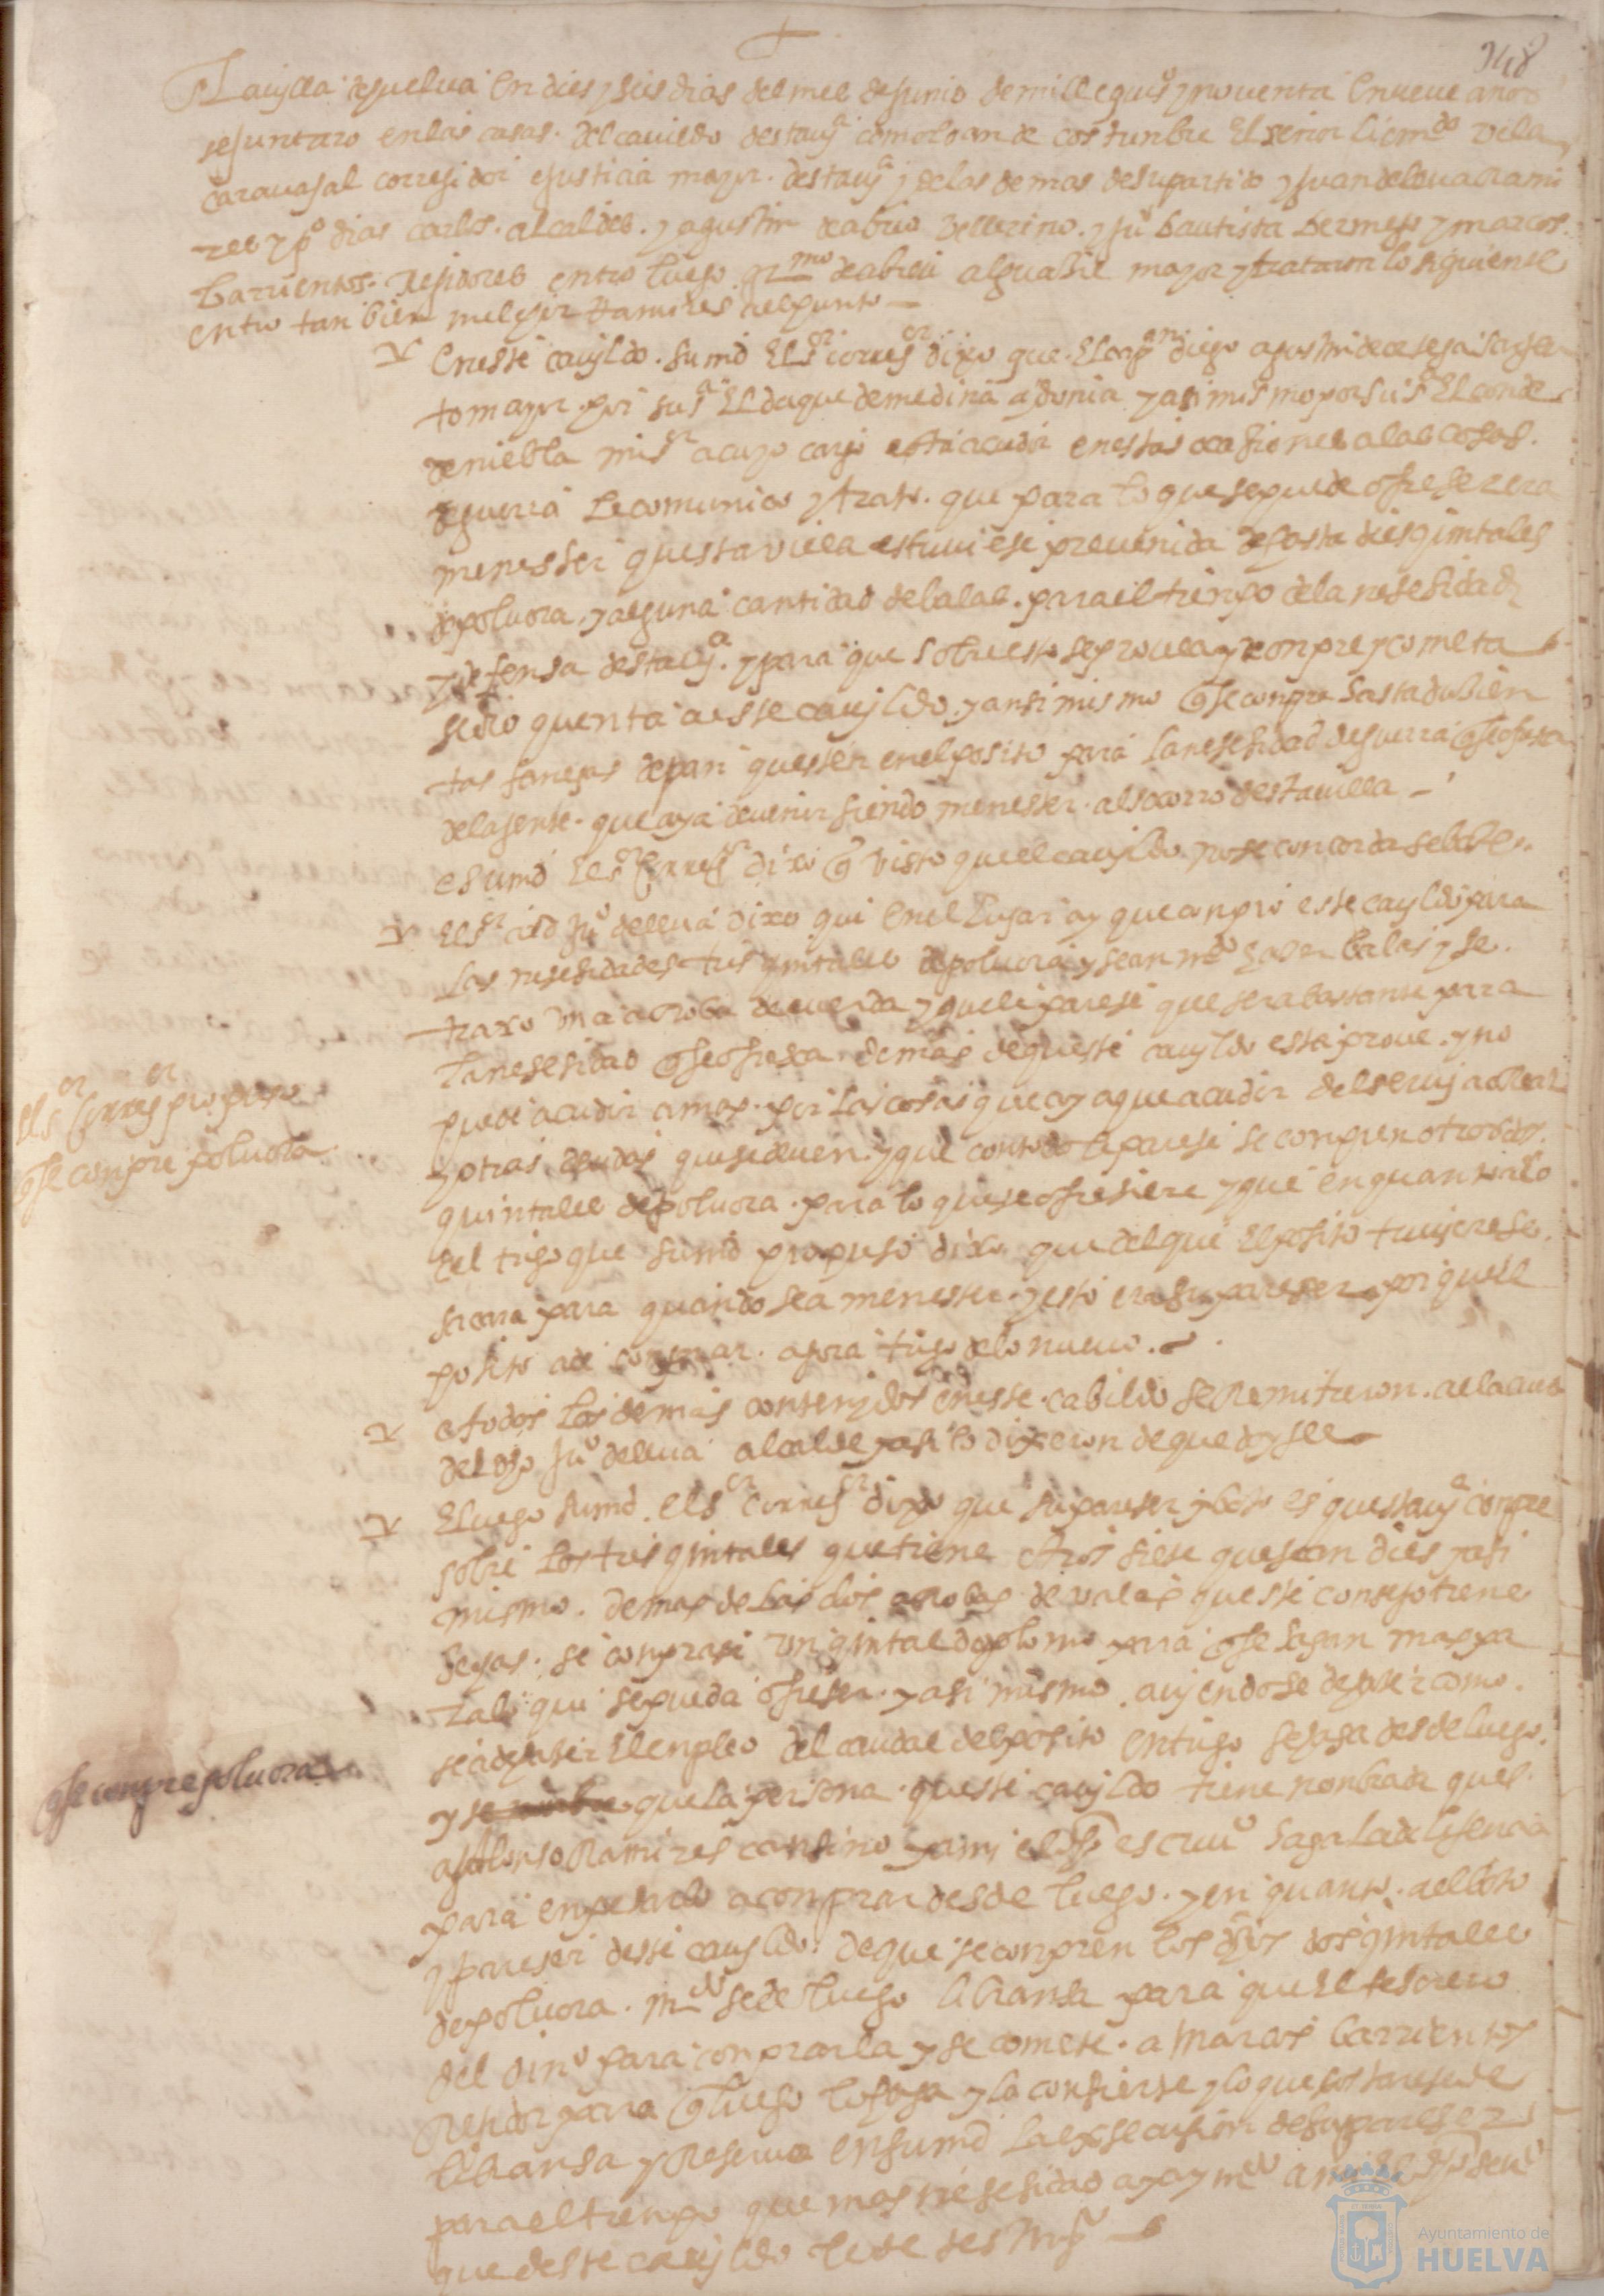 348
En la uylla de guelva en dies y seis dias del mes de junio de mill e quios y noventa e nueve años
se juntaro en las casas del cavildo desta uya como lo an de costunbre El señor licendo vela
caravajal corregidor e justicia mayor desta uya y de las demas de su partido y juan de leva rami
res y po dias carlos alcaldes y agustin de abrio y ju bautista bermejo y marcos
barrientos regidores entro luego grmo de abreu alguasil mayor y trataron lo siguiente
entro tanbien melchor Ramires del punto
En este cauyldo su md El sor corregor dixo que El capan diego agustin de
to mayor por su sa El duque de medina sydonia y asi mismo por su sa El conde
de niebla mi sor a cuyo cargo esta acudir en estas ocasiones a las cosas
de guerra le comunico y trato que para lo que se puede ofreser era
menester questa villa estuviese prevenida de hasta dies qintales
de polvora y alguna cantidad de balas para el tienpo de la nesesidad
y defensa desta uya y para que sobre esto se provea y conpre y cometa
se dio quenta a este cauyldo y ansi mismo q se conpre hasta dusien
tas fanegas de pan questen en el posito para la nesesidad de guerra q se ofresca
de la jente que aya de venir siendo menester al socorro desta villa
e su md El sor Corregor dixo q visto que el cauyldo no se concorda se bote
El sor juo de leva dixo que en el lugar ay que conpro este cauyldo para
las nesesidades tres qintales de polvora y se an mdo haser balas y se
traxo una aroba de cuerda y que le parese que sera bastante para
la nesesidad q se ofresca demas de queste cauyldo esta prove y no
puede acudir a mas por las cosas que ay a que acudir del servicio Real
y otras deudas que se deven y que con todo le parese se conpren otros dos
quintales de polvora para lo que se ofresiere y que en quanto a lo
del trigo que su md propuso dixo que del que El posito tuvyere se
para quando sea menester y esto era su pareser porque El
posito a de conprar agora trigo de lo nuevo
e todos los demas contenydos en este cabildo se Remitieron a lo
del dho juo de leva alcalde y asi lo dixeron de que doy fee
E luego su md el sor Corregor dixo que su pareser y boto es questa uya conpre
sobre los tres qintales que tiene otros siete que sean dies y asi
mismo demas de las dos arrobas de valas queste consejo tiene
hechas se conprase un qintal de plomo para q se hagan mas para
lo que se pueda ofreser y asi mismo avyendose de haser como
se a de haser El enpleo del caudal del posito en trigo se haga desde luego
y que la persona queste cauyldo tiene nonbrada ques
alonso Ramires cansino y a mi el dho escrivo haga la dilijencia
para enpesarlo a conprar desde luego y en quanto al boto
y pareser deste cauyldo de que se conpren los dhos dos qintales
de polvora mdo se de luego libransa para que El tesorero
del dino para conprarla y se comete a marcos barrientos
Regidor para q luego lo haga y la consierte y lo que costare se de
libransa y Reserva en su md la exsecusion de su pareser
para el tienpo que mas nesesidad aya y mdo a mi El dho escrivo
que deste cauyldo le de testimo
El sor Corregor propuso
q se conpre polvora
q se conpre polvora
Ayuntamiento de
HUELVA